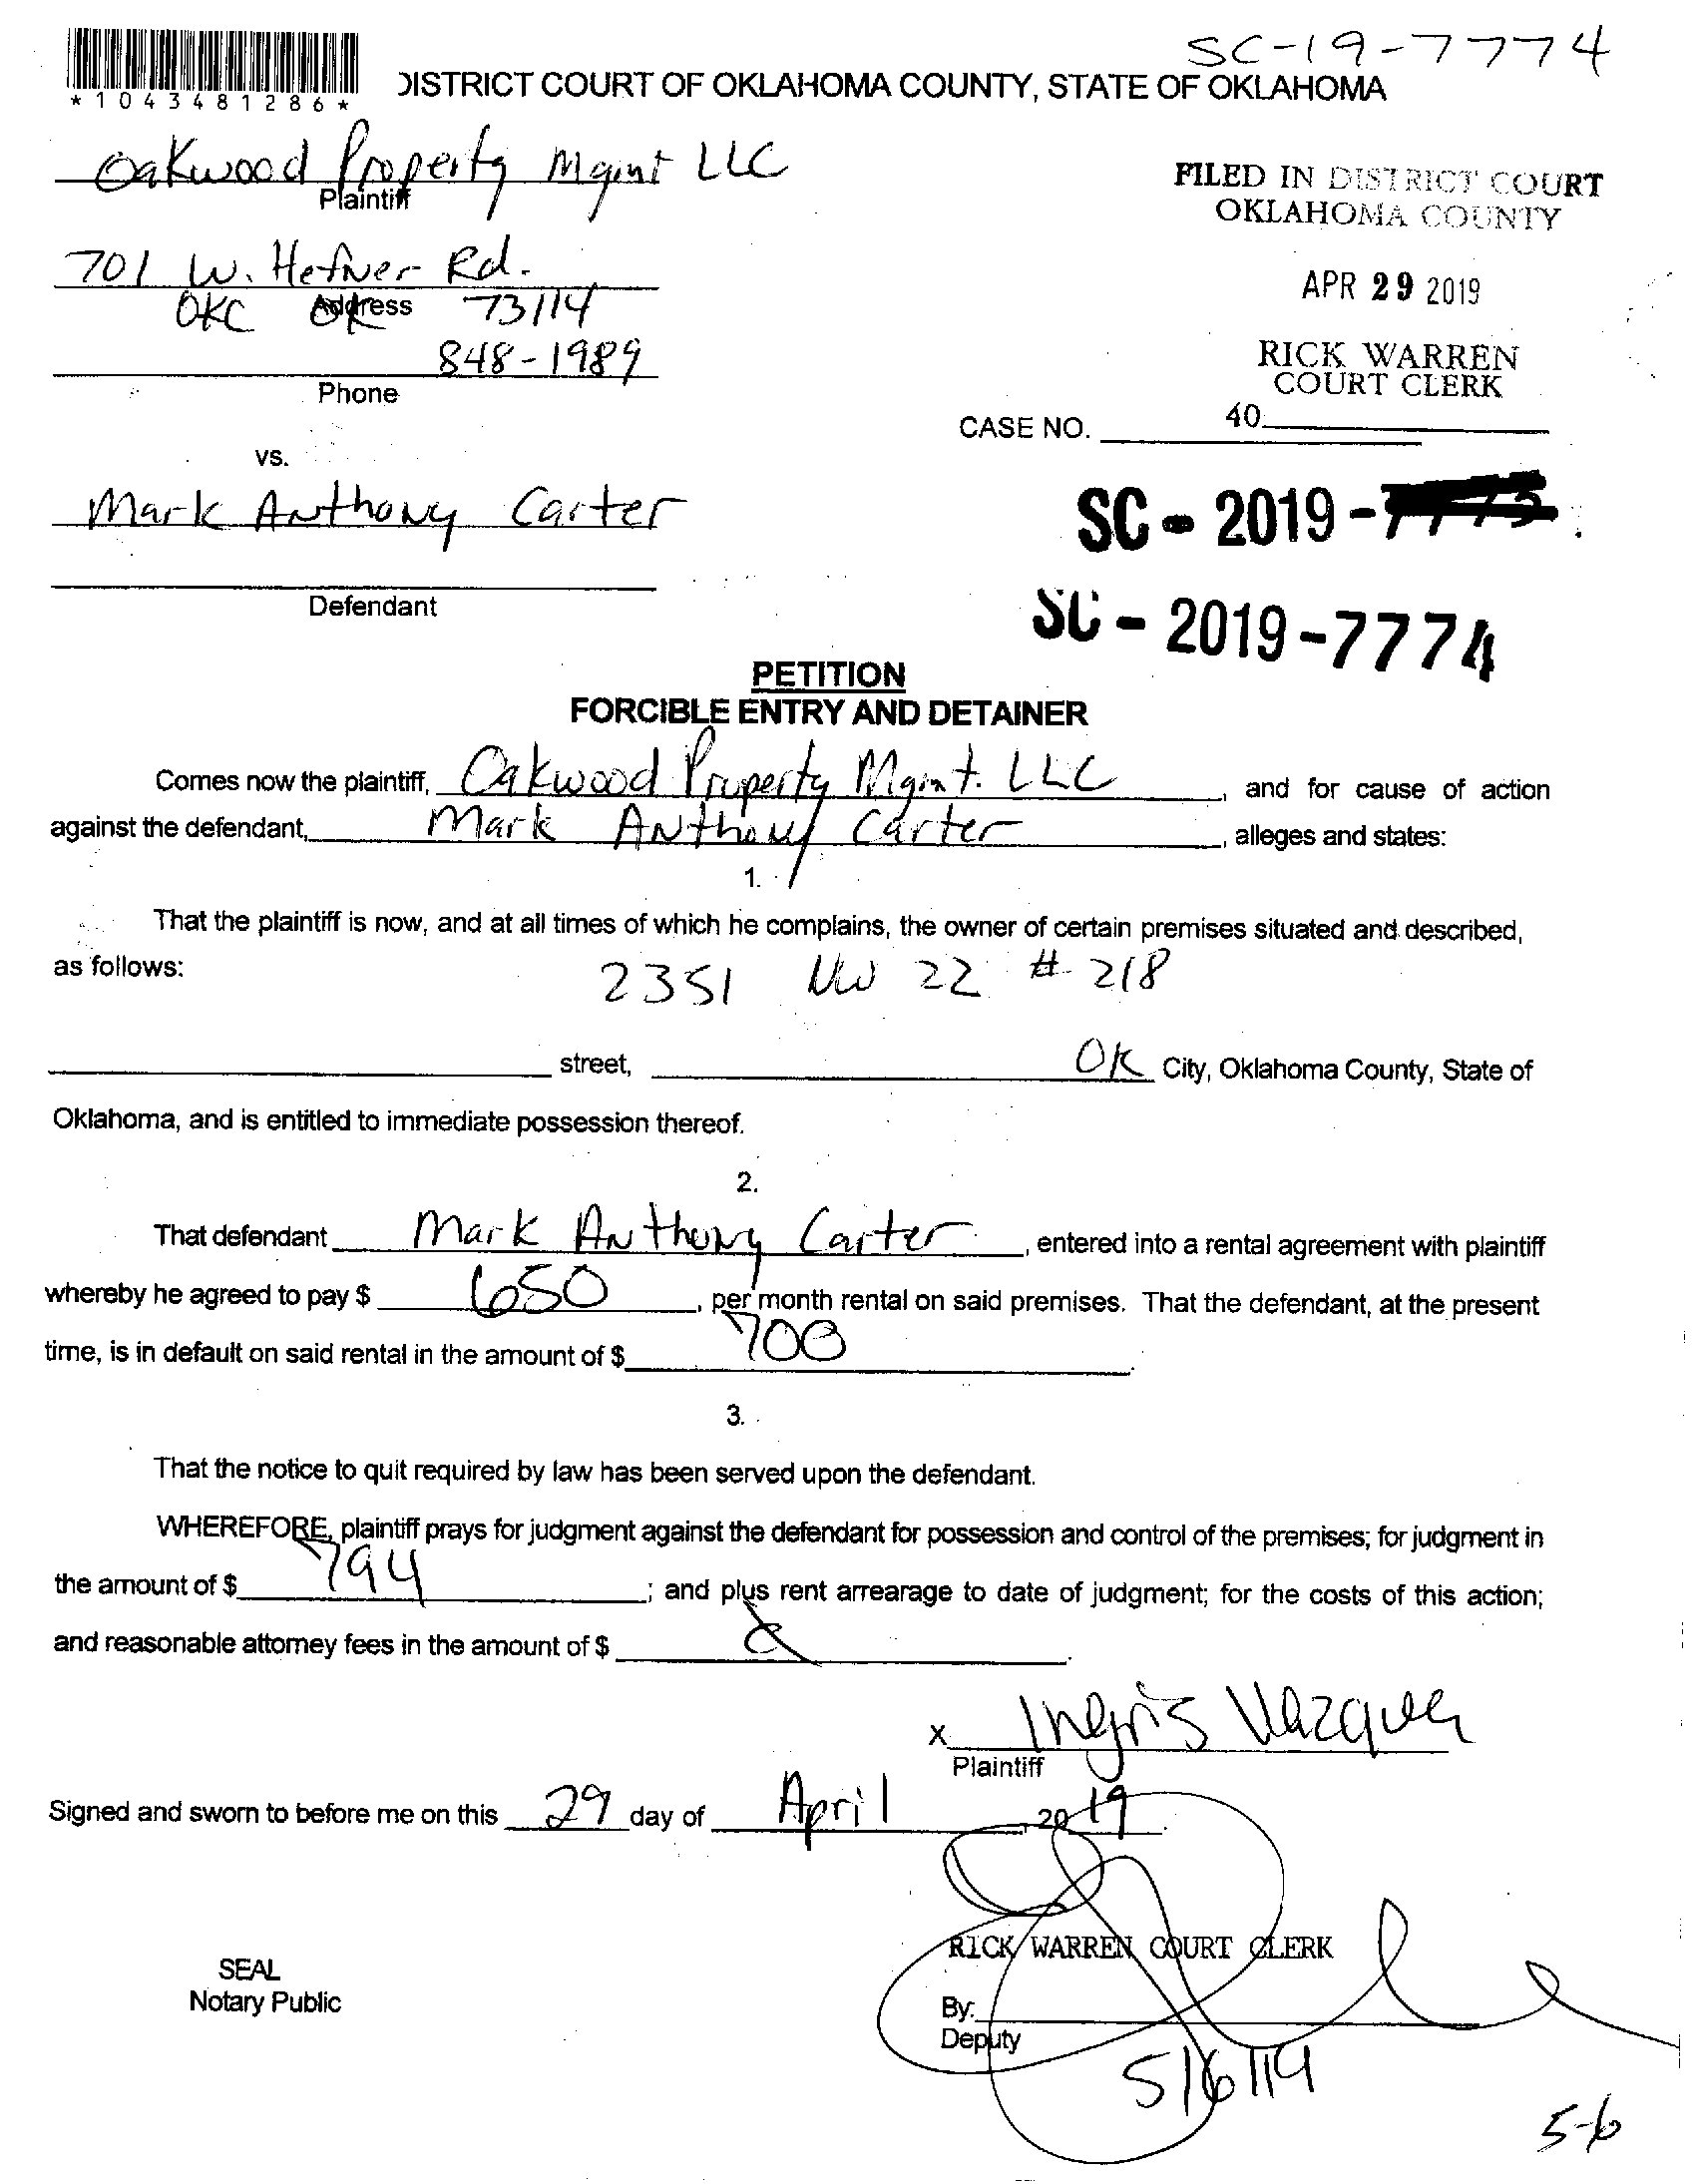 SC-19-7774
*1043481286*
DISTRICT COURT OF OKLAHOMA COUNTY, STATE OF OKLAHOMA
Oakwood Property Mgmt LLC
Plaintiff
FILED IN DISTRICT COURT
OKLAHOMA COUNTY
701 W. Hefner Rd.
Address
OKC OK 73114
APR 29 2019
848-1989
Phone
RICK WARREN
COURT CLERK
CASE NO. 40
vs.
Mark Anthony Carter
SC - 2019 - 7775
Defendant
SC - 2019 - 7774
PETITION
FORCIBLE ENTRY AND DETAINER
Comes now the plaintiff, Oakwood Property Mgmt. LLC, and for cause of action
against the defendant, Mark Anthony Carter, alleges and states:
1.
That the plaintiff is now, and at all times of which he complains, the owner of certain premises situated and described,
as follows: 2351 NW 22 # 218
street, OK City, Oklahoma County, State of
Oklahoma, and is entitled to immediate possession thereof.
2.
That defendant Mark Anthony Carter, entered into a rental agreement with plaintiff
whereby he agreed to pay $ 650, per month rental on said premises. That the defendant, at the present
time, is in default on said rental in the amount of $ 700.
3.
That the notice to quit required by law has been served upon the defendant.
WHEREFORE, plaintiff prays for judgment against the defendant for possession and control of the premises; for judgment in
the amount of $ 794; and plus rent arrearage to date of judgment; for the costs of this action;
and reasonable attorney fees in the amount of $ .
x Ingris Vazquez
Plaintiff
Signed and sworn to before me on this 29 day of April, 2019.
RICK WARREN COURT CLERK
SEAL
Notary Public
By:
Deputy
5/6/19
5-6